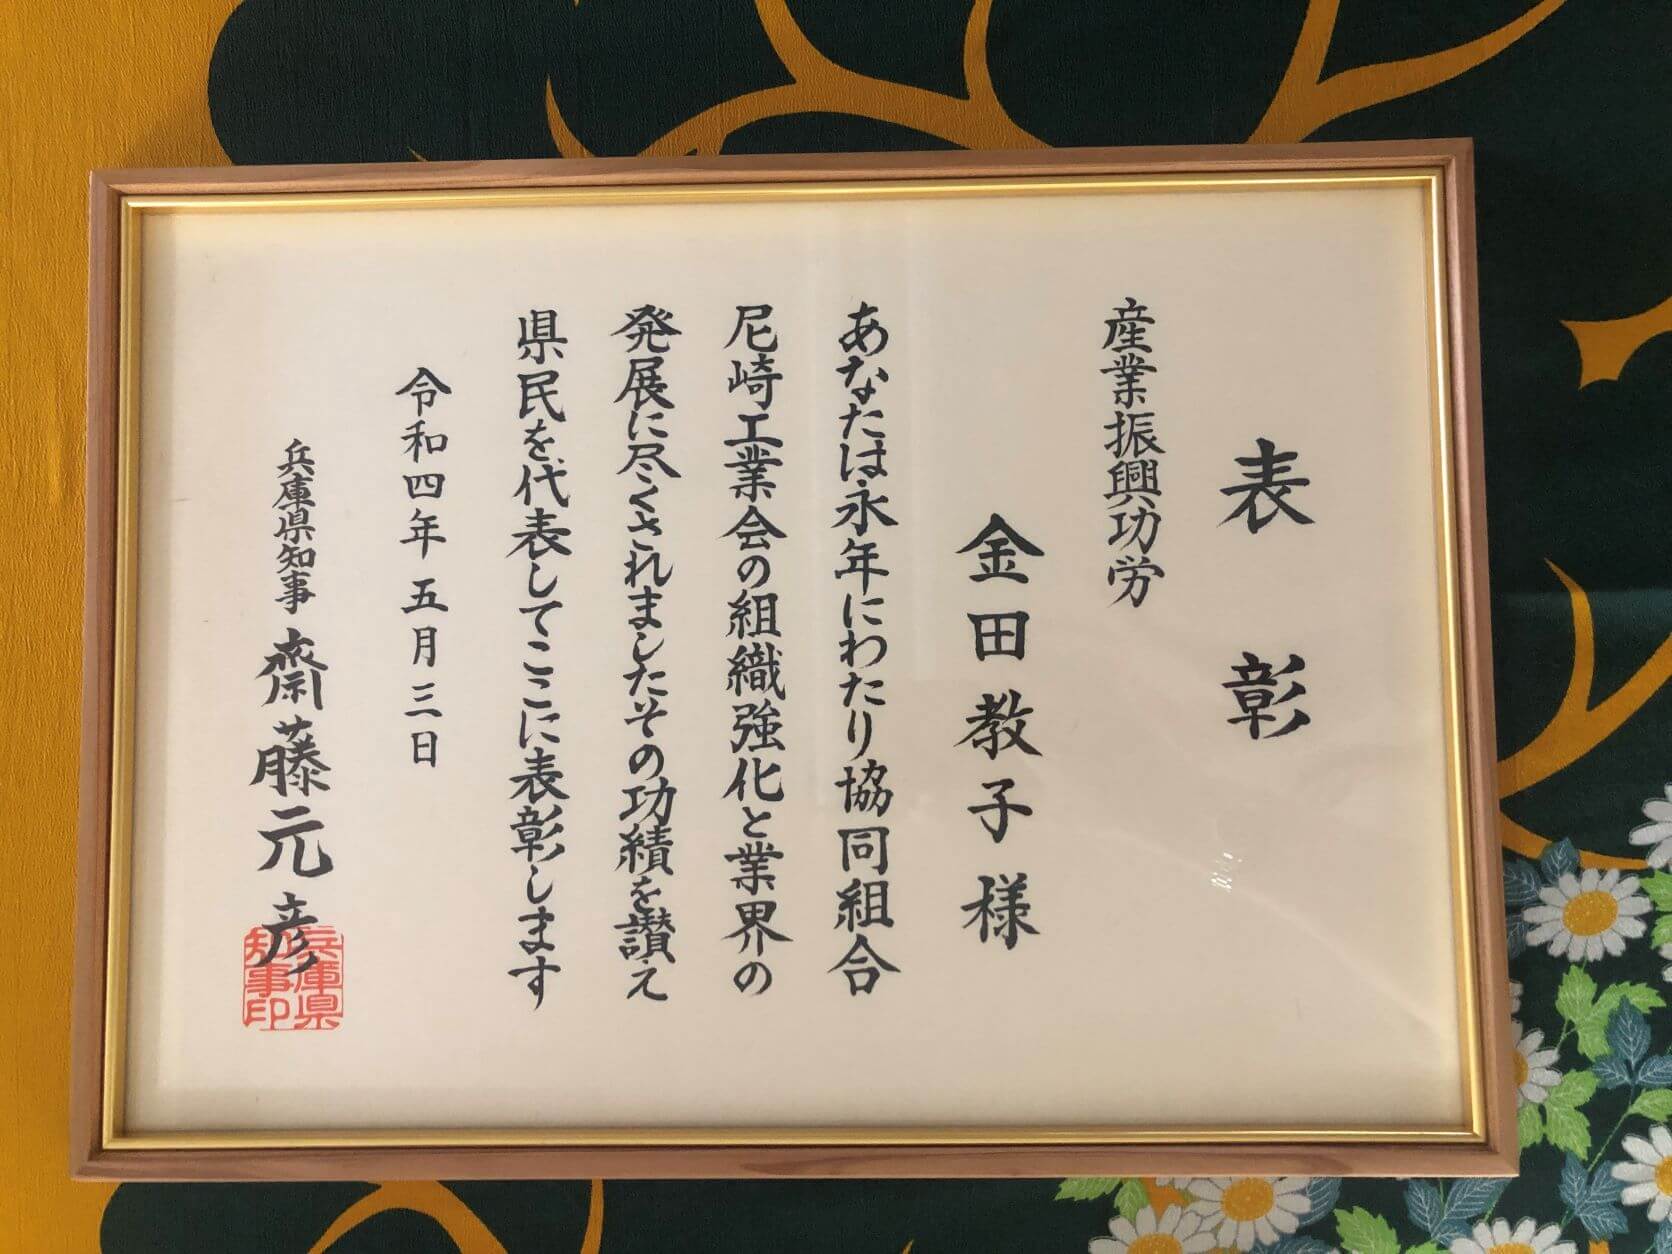 表彰
産業振興功労
金田教子様
あなたは永年にわたり協同組合
尼崎工業会の組織強化と業界の
発展に尽くされましたその功績を讃え
県民を代表してここに表彰します
令和四年五月三日
兵庫県知事 齋藤元彦
兵庫県知事印